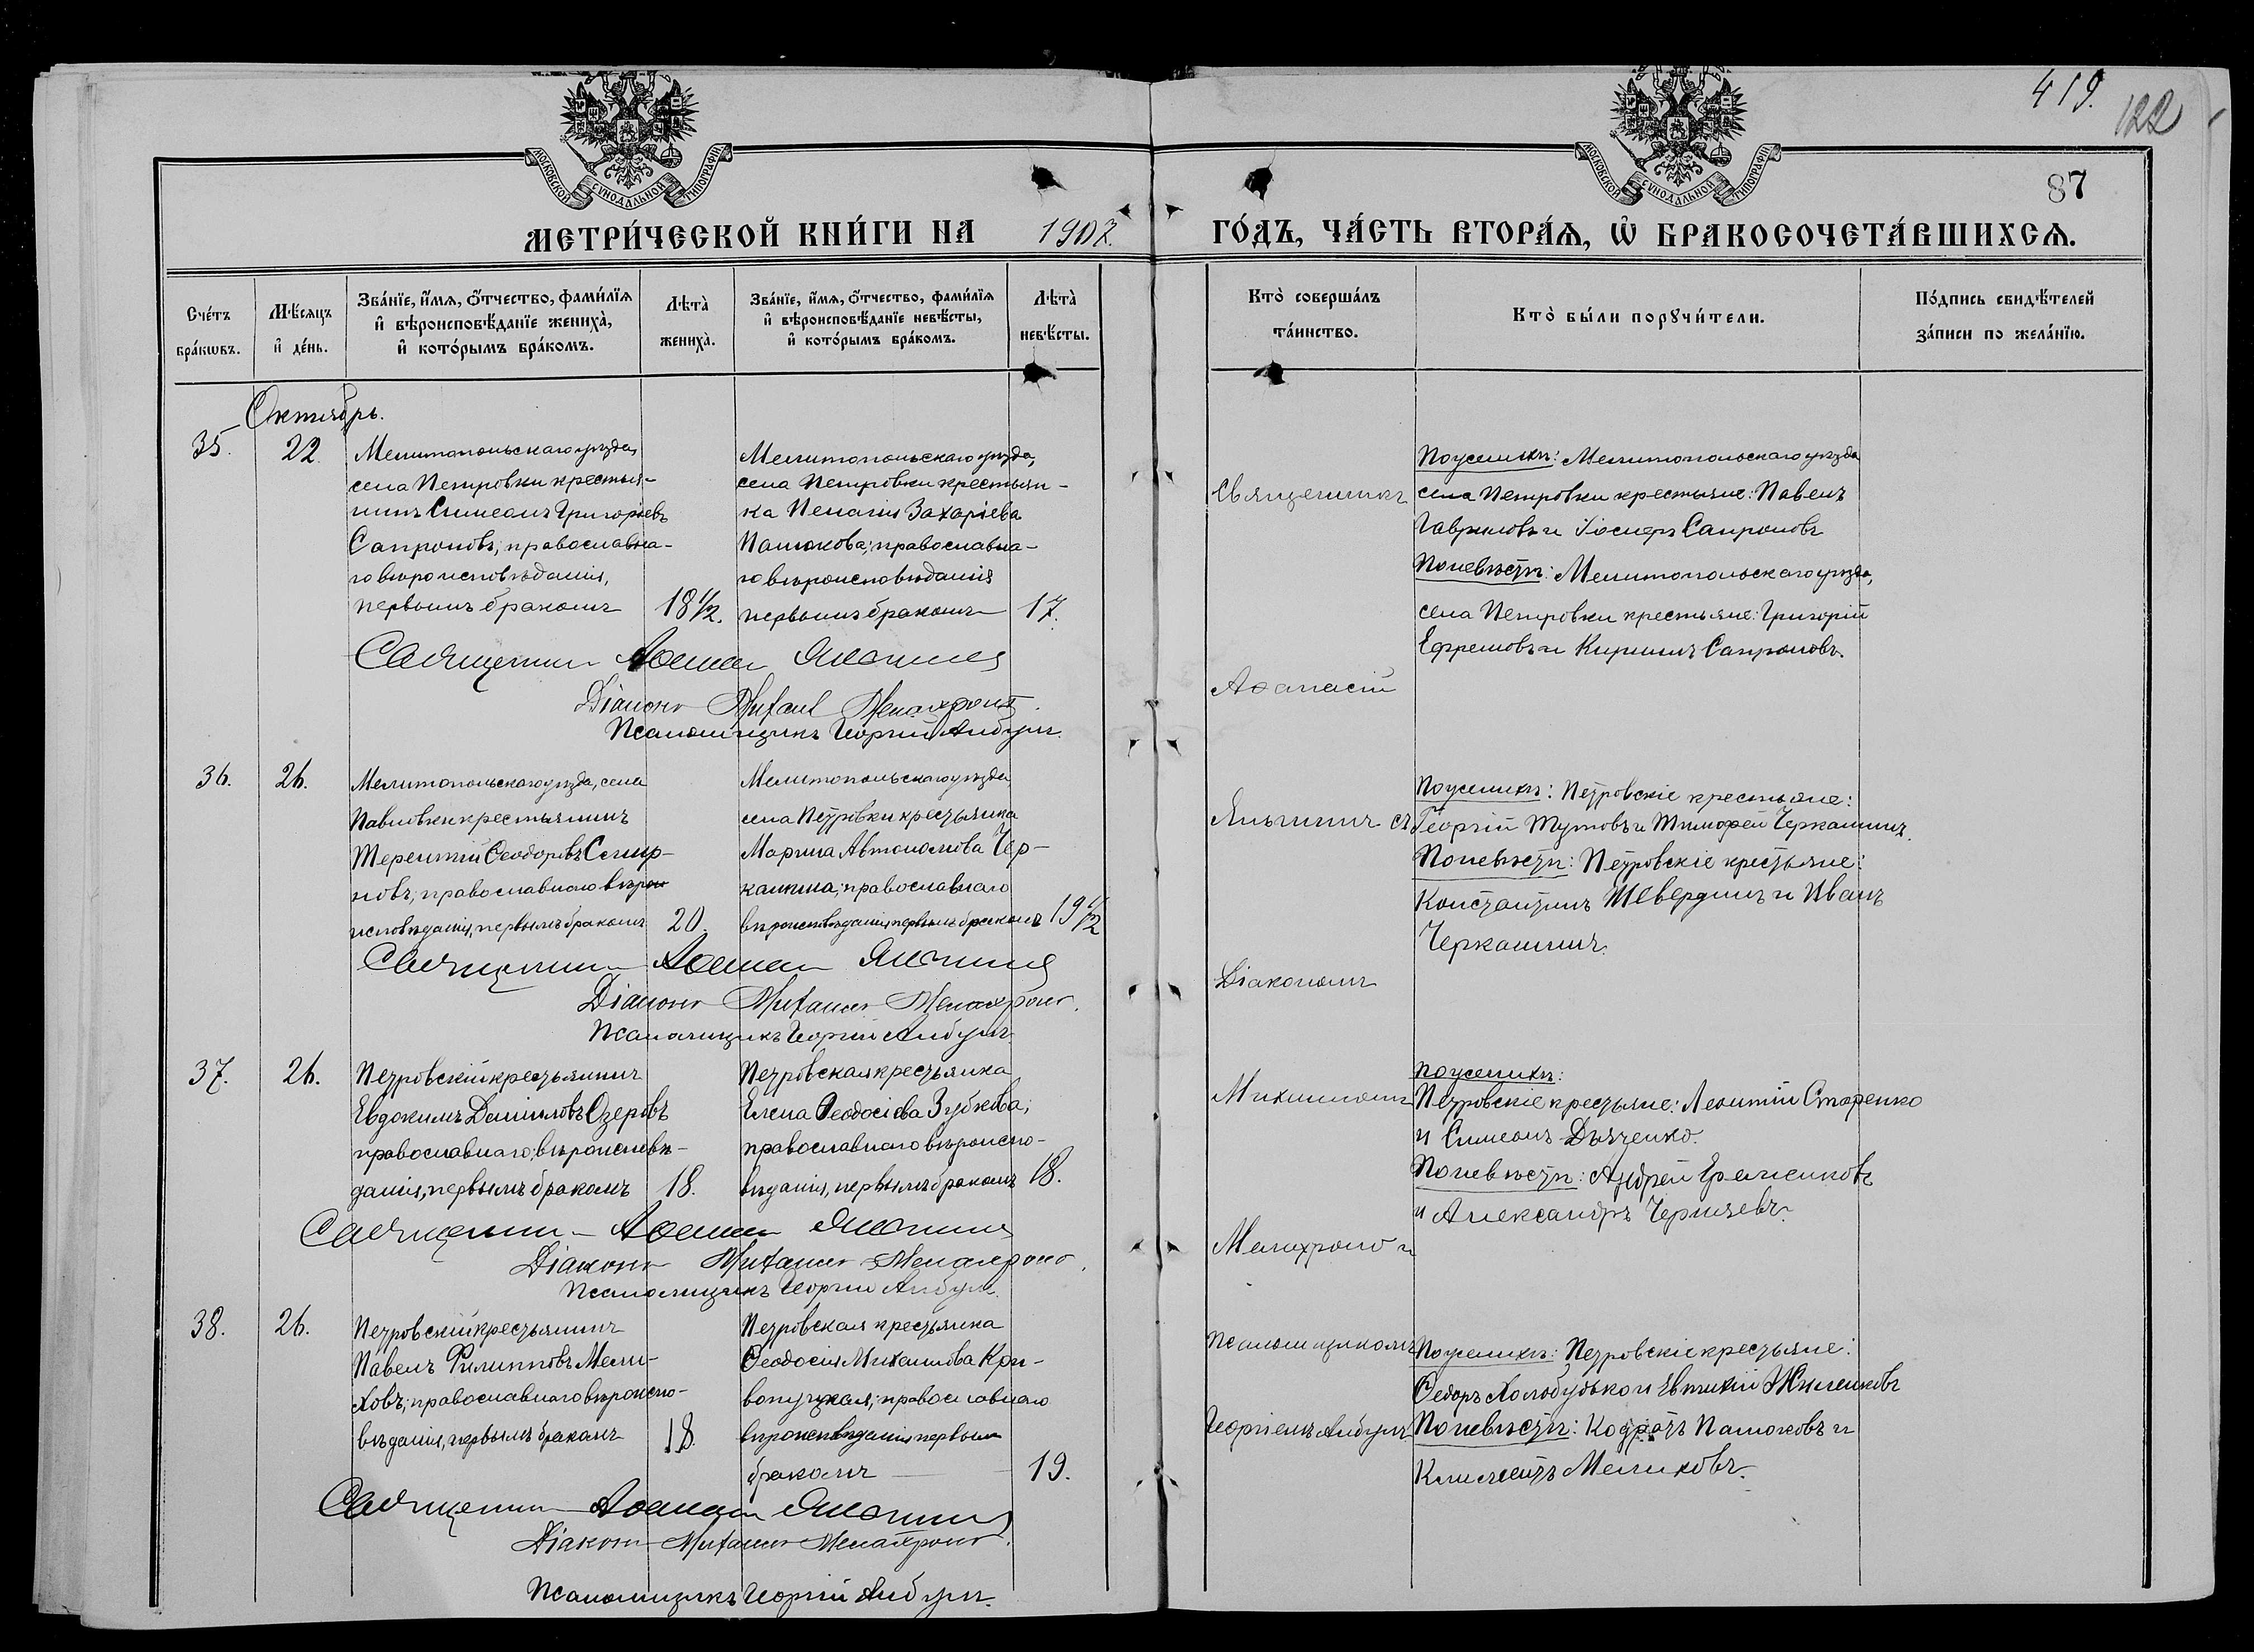 419.
122
87
МОСКОВСКОЙ СѴНОДАЛЬНОЙ ТИПОГРАФІИ
МОСКОВСКОЙ СѴНОДАЛЬНОЙ ТИПОГРАФІИ
МЕТРИ́ЧЕСКОЙ КНИ́ГИ НА 1907 ГО́ДЪ, ЧА́СТЬ ВТОРА́Я, Ѽ БРАКОСОЧЕТА́ВШИХСЯ.
Сче́тъ бра́кѡвъ.
Мѣ́сяцъ и҆ де́нь.
Зва́нїе, и҆́мя, ѻ҆́тчество, фами́лїя и҆ вѣроисповѣ́данїе жениха̀, и҆ кото́рымъ бра́комъ.
Лѣта̀ жениха̀.
Зва́нїе, и҆́мя, ѻ҆́тчество, фами́лїя и҆ вѣроисповѣ́данїе невѣ́сты, и҆ кото́рымъ бра́комъ.
Лѣта̀ невѣ́сты.
Кто̀ соверша́лъ та́инство.
Кто̀ бы́ли порꙋчи́тели.
По́дпись свидѣ́телей за́писи по жела́нїю.
Октябрь.
35.
22
Мелитопольскаго уѣзда,
села Петровки крестья-
нинъ Симеонъ Григорьевъ
Сапроновъ; православна-
го вѣроисповѣданія,
первымъ бракомъ
18 1/2.
Мелитопольскаго уѣзда,
села Петровки крестьян-
ка Пелагія Захаріева
Палюкова; православна-
го вѣроисповѣданія
первымъ бракомъ
17.
Священникъ
По женихѣ: Мелитопольскаго уѣзда
села Петровки крестьяне: Павелъ
Гавриловъ и Іосифъ Сапроновъ
По невѣстѣ: Мелитопольскаго уѣзда,
села Петровки крестьяне: Григорій
Ефремовъ и Кириллъ Сапроновъ.
Священникъ Аѳанасій
Діаконъ Михаилъ Мелахроно
Псаломщикъ Георгій Албулъ.
Аѳанасій
36.
26.
Мелитопольскаго уѣзда, села
Павловки крестьянинъ
Терентій Ѳеодоровъ
новъ; православнаго вѣрои
исповѣданія, первымъ бракомъ
20.
Мелитопольскаго уѣзда
села Петровки крестьянка
Марина Автономова Чер-
кашина; православнаго
вѣроисповѣданія, первымъ бракомъ
19 1/2
съ
По женихѣ: Петровскіе крестьяне:
Георгій Тутовъ и Тимофей Черкашинъ.
По невѣстѣ: Петровскіе крестьяне:
Константинъ Шевердинъ и Иванъ
Черкашинъ.
Священникъ Аѳанасій
Діаконъ Михаилъ Мелахроно.
Псаломщикъ Георгій Албулъ.
Діакономъ
37.
26.
Петровскій крестьянинъ
Евдокимъ Даніиловъ Озеровъ
православнаго; вѣроисповѣ-
данія, первымъ бракомъ
18.
Петровская крестьянка
Елена Ѳеодосіева Зубкова;
православнаго вѣроиспо-
вѣданія, первымъ бракомъ
18.
Михаиломъ
По женихѣ:
Петровскіе крестьяне: Леонтій Старенко
и Симеонъ Дьяченко.
По невѣстѣ: Андрей
и Александръ
Священникъ Аѳанасій
Діаконъ Михаилъ Мелахроно.
Псаломщикъ Георгій Албулъ.
Мелахроно и
38.
26.
Петровскій крестьянинъ
Павелъ Филипповъ Мели-
ховъ; православнаго вѣроиспо-
вѣданія, первымъ бракомъ
18.
Петровская крестьянка
Ѳеодосія Михаилова Кри-
православнаго
вѣроисповѣданія первымъ
бракомъ
19.
Псаломщикомъ
Георгіемъ Албулъ
По женихѣ: Петровскіе крестьяне:
Ѳедоръ Холобудько и Евтихій Жиленковъ
По невѣстѣ: Кодратъ Палюковъ и
Климентъ Мелиховъ.
Священникъ Аѳанасій
Діаконъ Михаилъ Мелахроно.
Псаломщикъ Георгій Албулъ.